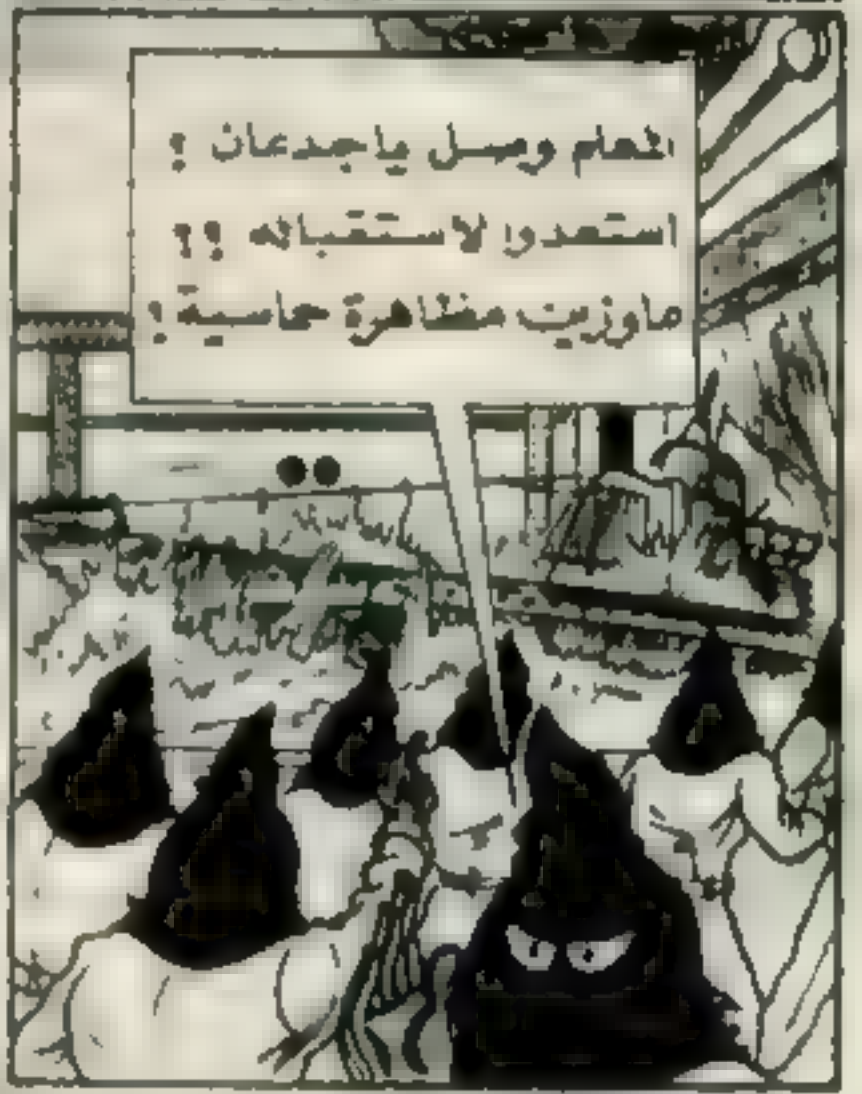 المعلم وصل ياجدعان !
استعدوا لاستقباله !!
عاوزين مظاهرة حامية !